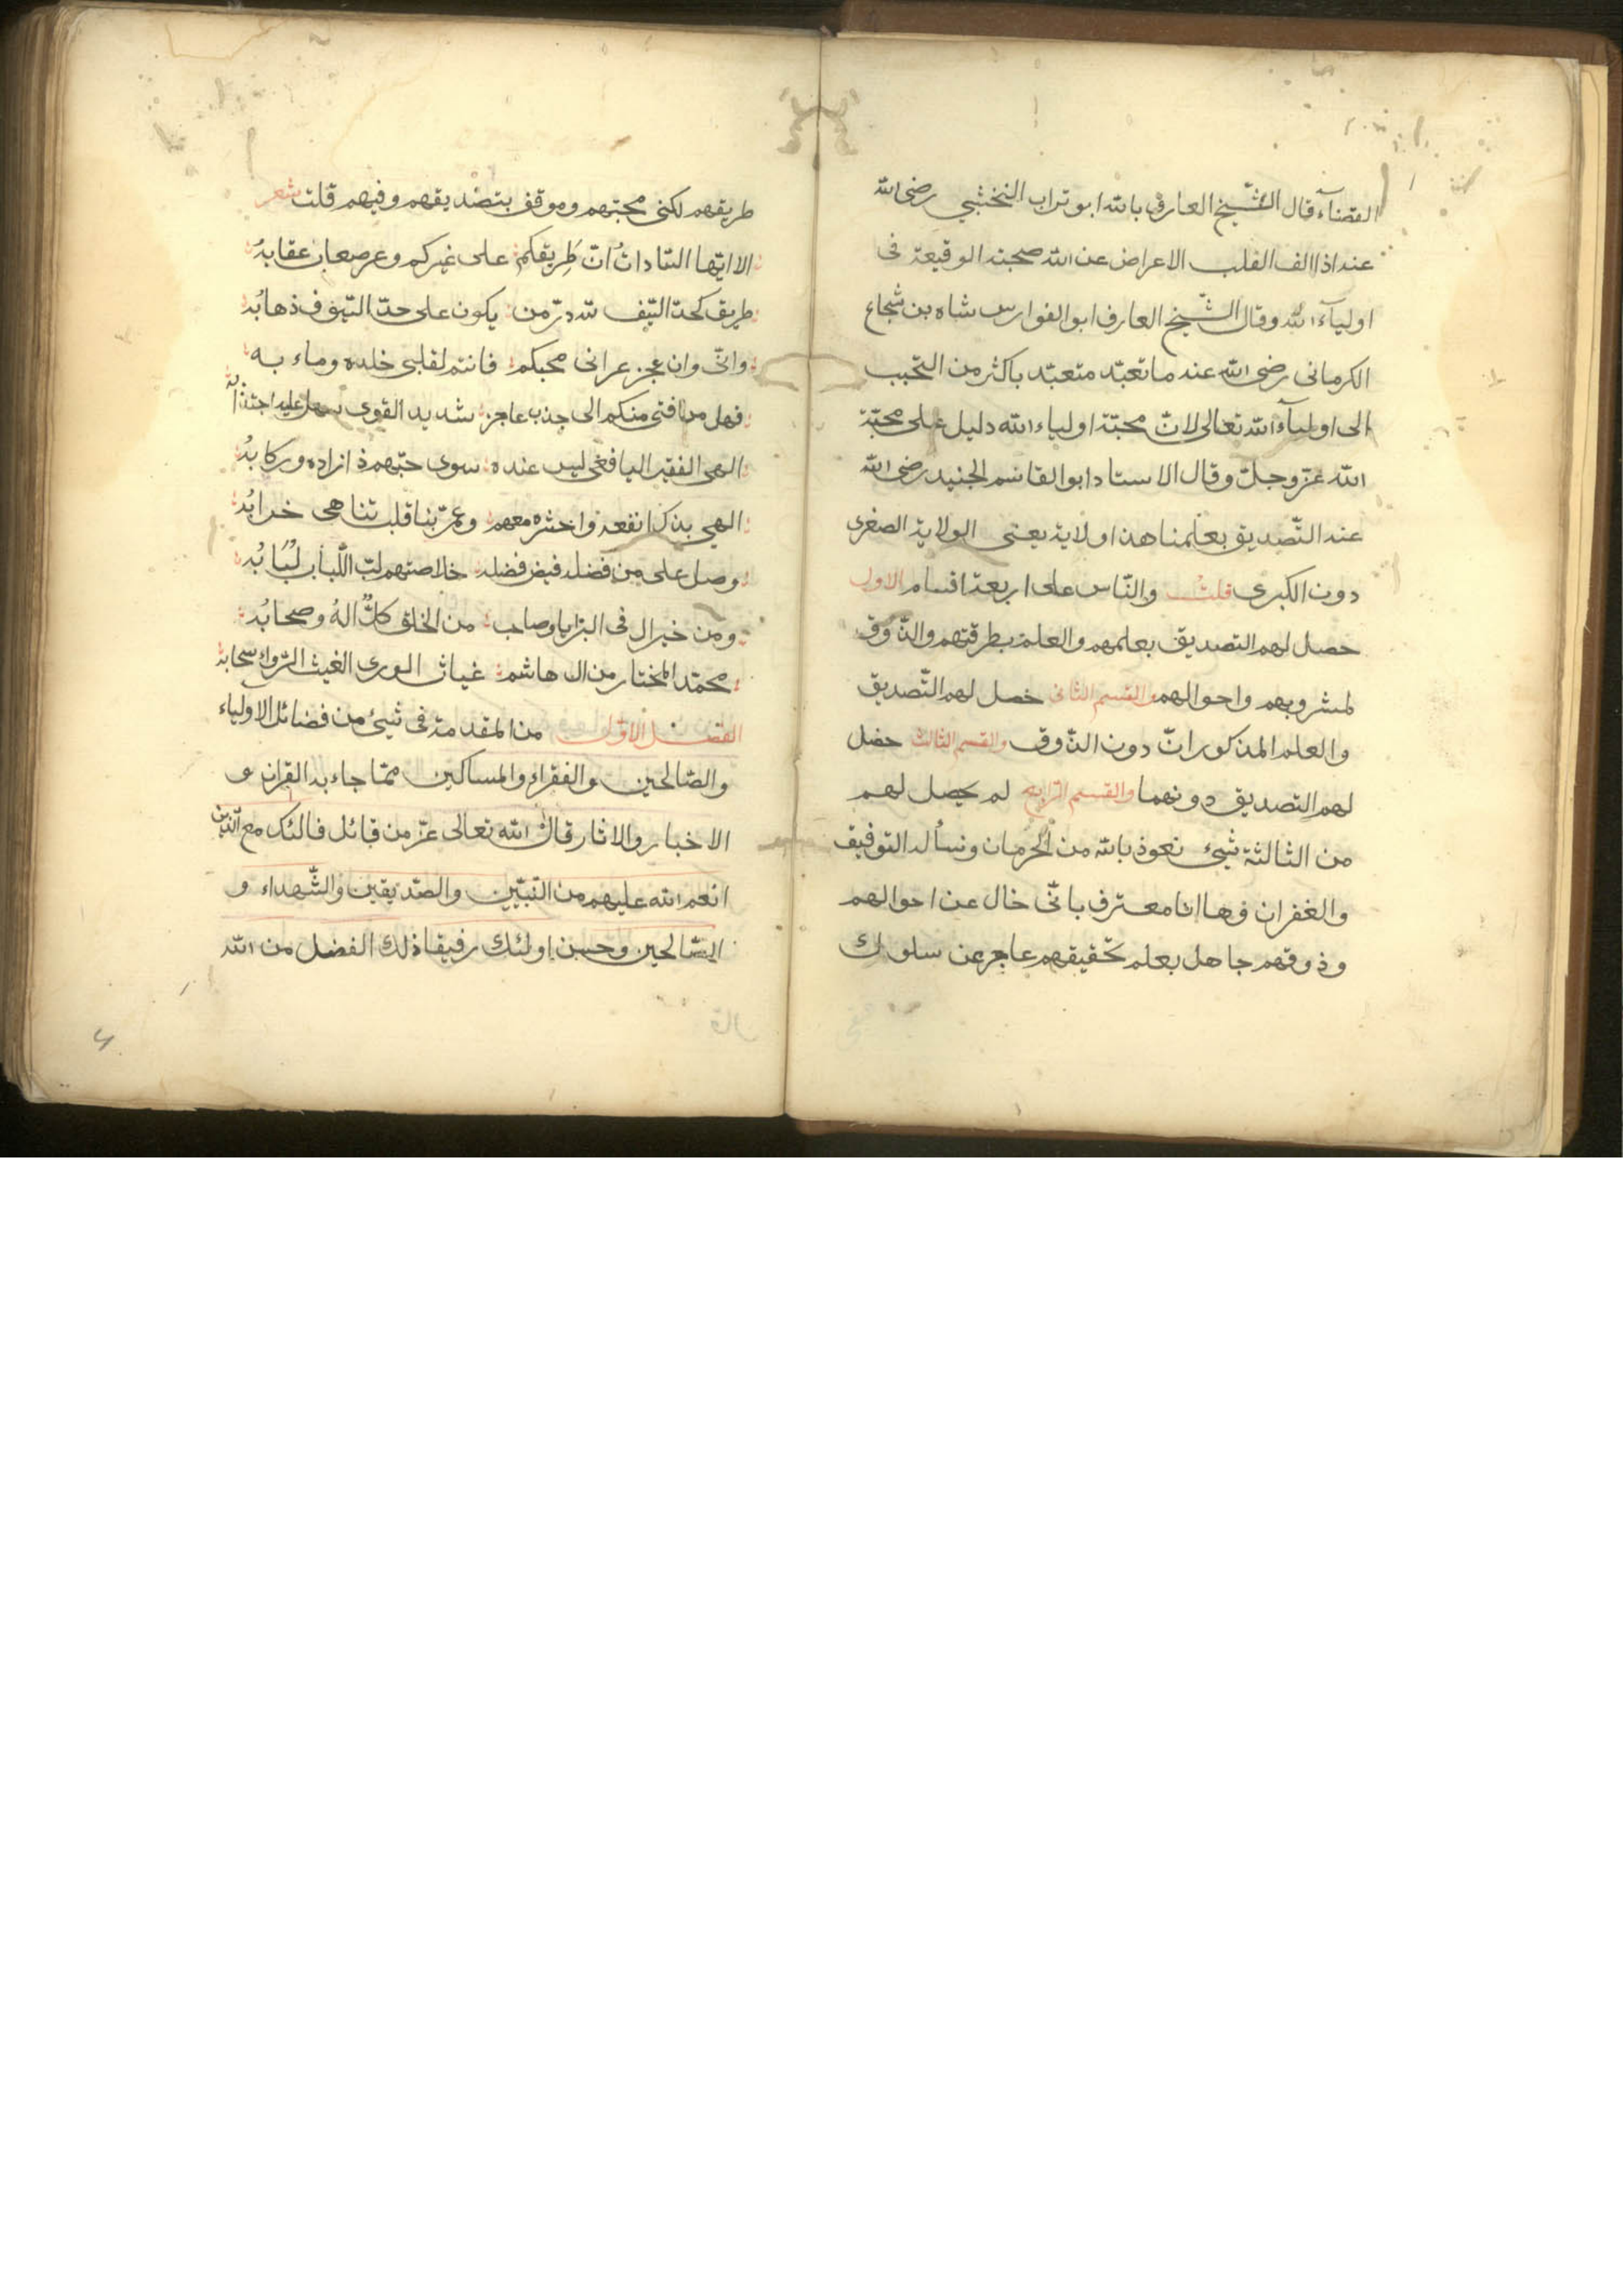 القضاء قال الشّيخ العارف بالله ابو تراب النخشبي رضى الله
عنه اذا الف القلب الاعراض عن الله صحبته الوقيعة فى
اوليآء الله وقال الشّيخ العارف ابو الفوارس شاه بن شجاع
الكرمانى رضى الله عنه ما تعبّد متعبّد باكثر من التحبب
الى اوليآء الله تعالى لانّ محبّة اولياء الله دليل على محبّة
الله عزّ وجلّ وقال الاستاد ابو القاسم الجنيد رضى الله
عنه التّصديق بعلمنا هذا ولاية يعنى الولاية الصغرى
دون الكبرى قلت والنّاس على اربعة اقسام الاول
حصل لهم التصديق بعلمهم والعلم بطرقتهم والذّوق
لمشروبهم واحوالهم والقسم الثانى حصل لهم التّصديق
والعلم المذكورانّ دون الذّوق والقسم الثالث حصل
لهم التصديق دونهما والقسم الرّابع لم يحصل لهم
من الثالثة شيء نعوذ بالله من الحرمان ونسأله التوفيق
والغفران وها انا معترف بانّى خال عن احوالهم
وذوقهم جاهل بعلم تحقيقهم عاجز عن سلوك
طريقهم لكنى محبّهم وموقن بتصديقهم وفيهم قلت شعر
الا ايّها السّادات انّ طريقكم على غيركم وعر صعاب عقابه
طريق كحدّ السّيف لله درّ من يكون على حدّ السّيوف ذهابه
وانّى وان عجز عرانى محبكم فانتم لقلبى خلده وماء به
فهل من فتى منكم الى جذب عاجز شديد القوى سهل عليه اجتذابه
الهى الفقير اليافعى ليس عنده سوى حبّهم ذا زاده وركابه
الهى بذاك انفعه واحشره معهم وعمّر بنا قلب تناهى خرابه
وصل على من فضله فيض فضله خلاصتهم لبّ اللّباب لبابه
ومن خير ال فى البرايا وصاحب من الخلق كلّ اله وصحابه
محمّد المختار من ال هاشم غياث الورى الغيث الرّواء سحابه
الفصل الاوّل من المقدمة فى شيئ من فضائل الاولياء
والصّالحين والفقراء والمساكين ممّا جاء به القران و
الاخبار والاثار قال الله تعالى عزّ من قائل فاولئك مع الّذين
انعم الله عليهم من النّبيّين والصّدّيقين والشّهداء و
الصّالحين وحسن اولئك رفيقا ذلك الفضل من الله